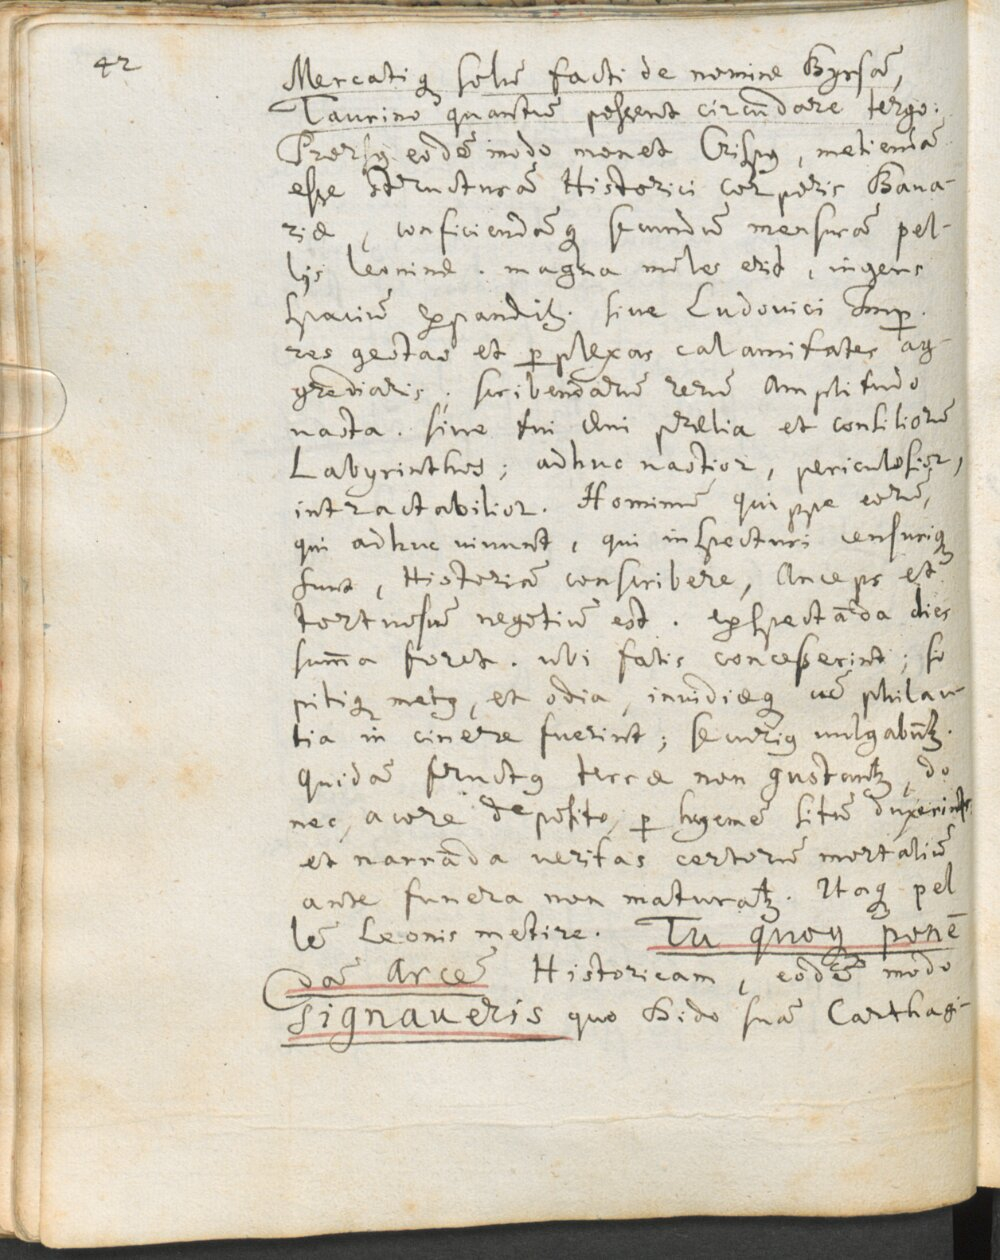 42
Mercatiq; solū facti de nomine Byrsā,
Taurino quantū possent circūdare tergo.
Prorsꝰ eodē modo monet Crispꝰ, metiendā
esse structurā Historici corporis Baua-
riæ, conficiendāq; secundū mensurā pel-
lis leoninæ. magna moles erit, ingens
spaciū expanditꝛ. siue Ludouici Imp.
res gestas et ꝑplexas calamitates ag-
grediaris; scribendarū rerū Amplitudo
uasta. siue tui æui prælia et consiliorū
Labyrinthos; adhuc uastior, periculosior,
intractabilior. Hominū quippe eorū,
qui adhuc uiuunt, qui inspecturi censuriq;
sunt, Historiā conscribere, Anceps et
tortuosū negotiū est. exspectāda dies
sum̄a foret. ubi fatis concesserint; so
pitiq; metꝰ, et odia, inuidiæq; cū philau-
tia in cinere fuerint; securiꝰ uulgabūtꝛ.
quidā fructꝰ terræ non gustantꝛ, do
nec, acore deposito, ꝑ hyemē sitū duxerint.
et narrāda ueritas certorū mortaliū
ante funera non maturatꝛ. Itaq; pel
lē Leonis metire. Tu quoq; ponē
dā Arcē Historicam, eodē modo
signaueris quo Dido suā Carthagi-